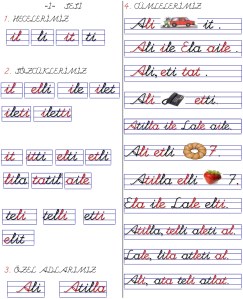 -1- SESİ
1. HECELERİMİZ
il li it ti
2. SÖZCÜKLERİMİZ
it elli ile ilet
ileti iletti
it itti etli etli
lila tatil aile
teli telli etti
elit
3. ÖZEL ADLARIMIZ
Ali Atilla
4. CÜMLELERİMİZ
Ali it.
Ali ile Ela aile.
Ali, eti tat.
Ali etti.
Atilla ile Lale aile.
Ali etli 7.
Atilla elli 7.
Ela ile Lale elit.
Atilla, telli aleti al.
Lale, lila atleti al.
Ali, ata teli atlat.